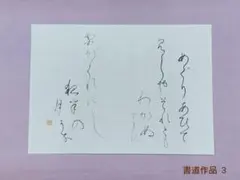 めぐりあひて
見しやそれとも
わかぬ
雲がくれにし
夜半の
月かな
書道作品 3